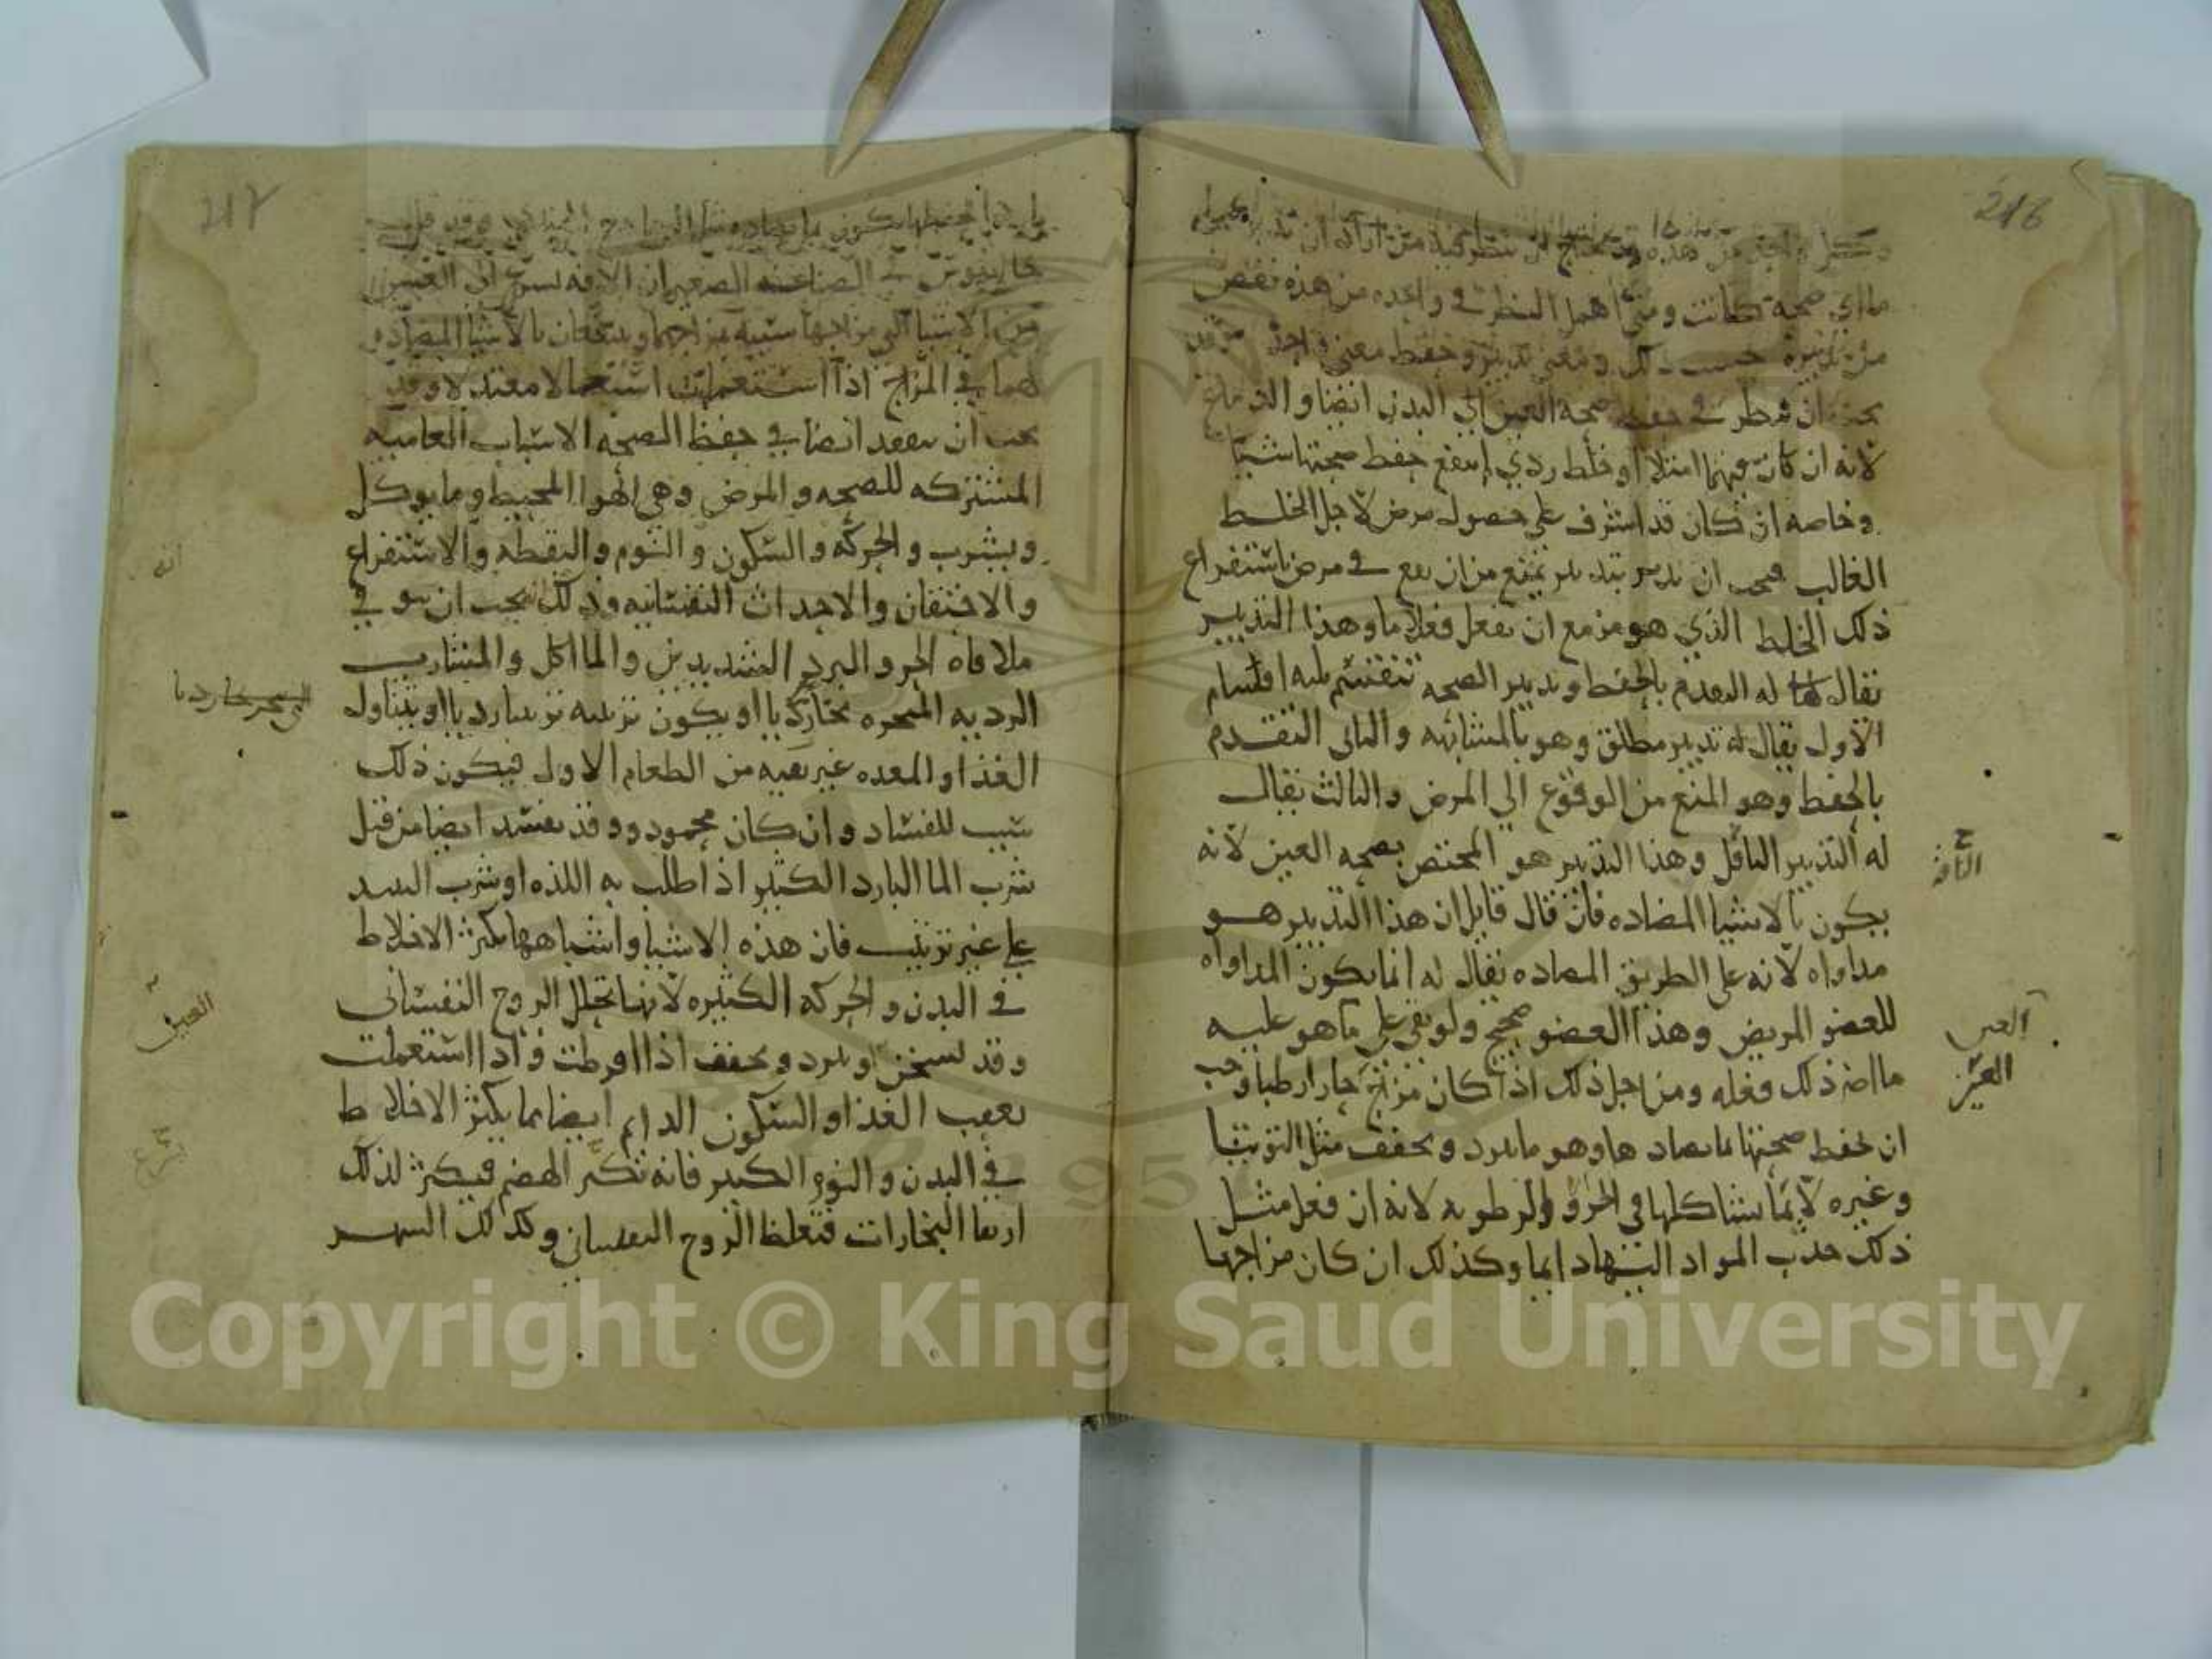 216
وكل واحد من هذه يحتاج ان ينظر فيه من اراد ان
مااي صحة كانت ومتى اهمل النظر في واحده من هذه نقص
من تدبيره حسب ذلك ومعنى تدبير وحفظ معنى واحد وقد
يجب ان ينظر في حفظ صحة العين الي البدن ايضا والدماغ
لانه ان كان فيهما امتلا او خلط ردي لم ينفع حفظ صحتها شيا
وخاصه ان كان قد اشرف على حصول مرض لاجل الخلط
الغالب فيجب ان تدبر بتدبير يمنع من ان يقع في مرض باستفراغ
ذلك الخلط الذي هو مزمع ان يفعل فعلا ما وهذا التدبير
يقال له التقدم بالحفظ وتدبير الصحه تنقسم ثلثه اقسام
الاول يقال له تدبير مطلق وهو بالمشابهه والثاني التقدم
بالحفظ وهو المنع من الوقوع الي المرض والثالث يقال
له التدبير الناقل وهذا التدبير هو المختص بصحه العين لانه
يكون بالاشيا المضاده فان قال قايل ان هذا التدبير هو
مداواه لانه على الطريق المضاده يقال له انما يكون المداواه
للعضو المريض وهذا العضو صحيح ولو بقي على ما هو عليه
ما اضر ذلك فعله ومن اجل ذلك اذا كان مزاج حارا رطبا وجب
العين
العين
ان تحفظ صحتها بما يضادها وهو ما يبرد ويجفف مثل التوتيا
وغيره لا بما يشاكلها في الحر والرطوبه لانه ان فعل مثل
ذلك جذب المواد اليها دايما وكذلك ان كان مزاجها
217
جالينوس في الصناعه الصغيره ان الافه تسرع الى العينين
من الاشيا التي مزاجها شبيه بمزاجهما وينتفعان بالاشيا المضاده
لهما في المزاج اذا استعملت استعمالا معتدلا وقد
يجب ان يتفقد ايضا في حفظ الصحه الاسباب العاميه
المشتركه للصحه والمرض وهي الهوا المحيط وما يوكل
ويشرب والحركه والسكون والنوم واليقظه والاستفراغ
والاحتقان والاحداث النفسانيه وذلك يجب ان يتوقي
ملاقاه الحر والبرد الشديدين والماكل والمشارب
الرديه المبخره بخارا رديا او يكون ترتيبه ترتيبا رديا او يتناول
الغذا والمعده غير نقيه من الطعام الاول فيكون ذلك
سبب للفساد وان كان محمود وقد يفسد ايضا من قبل
شرب الما البارد الكثير اذا طلب به اللذه او شرب النبيد
على غير ترتيب فان هذه الاشيا واشباهها تكثر الاخلاط
في البدن والحركه الكثيره لانها تحلل الروح النفساني
العين
وقد تسخن او تبرد وتجفف اذا افرطت واذا استعملت
بعقب الغذا والسكون الدايم ايضا مما يكثر الاخلاط
في البدن والنوم الكثير فانه يكسر الهضم فيكثر لذلك
ارتقا البخارات فتغلظ الروح النفساني وكذلك السهر
Copyright © King Saud University